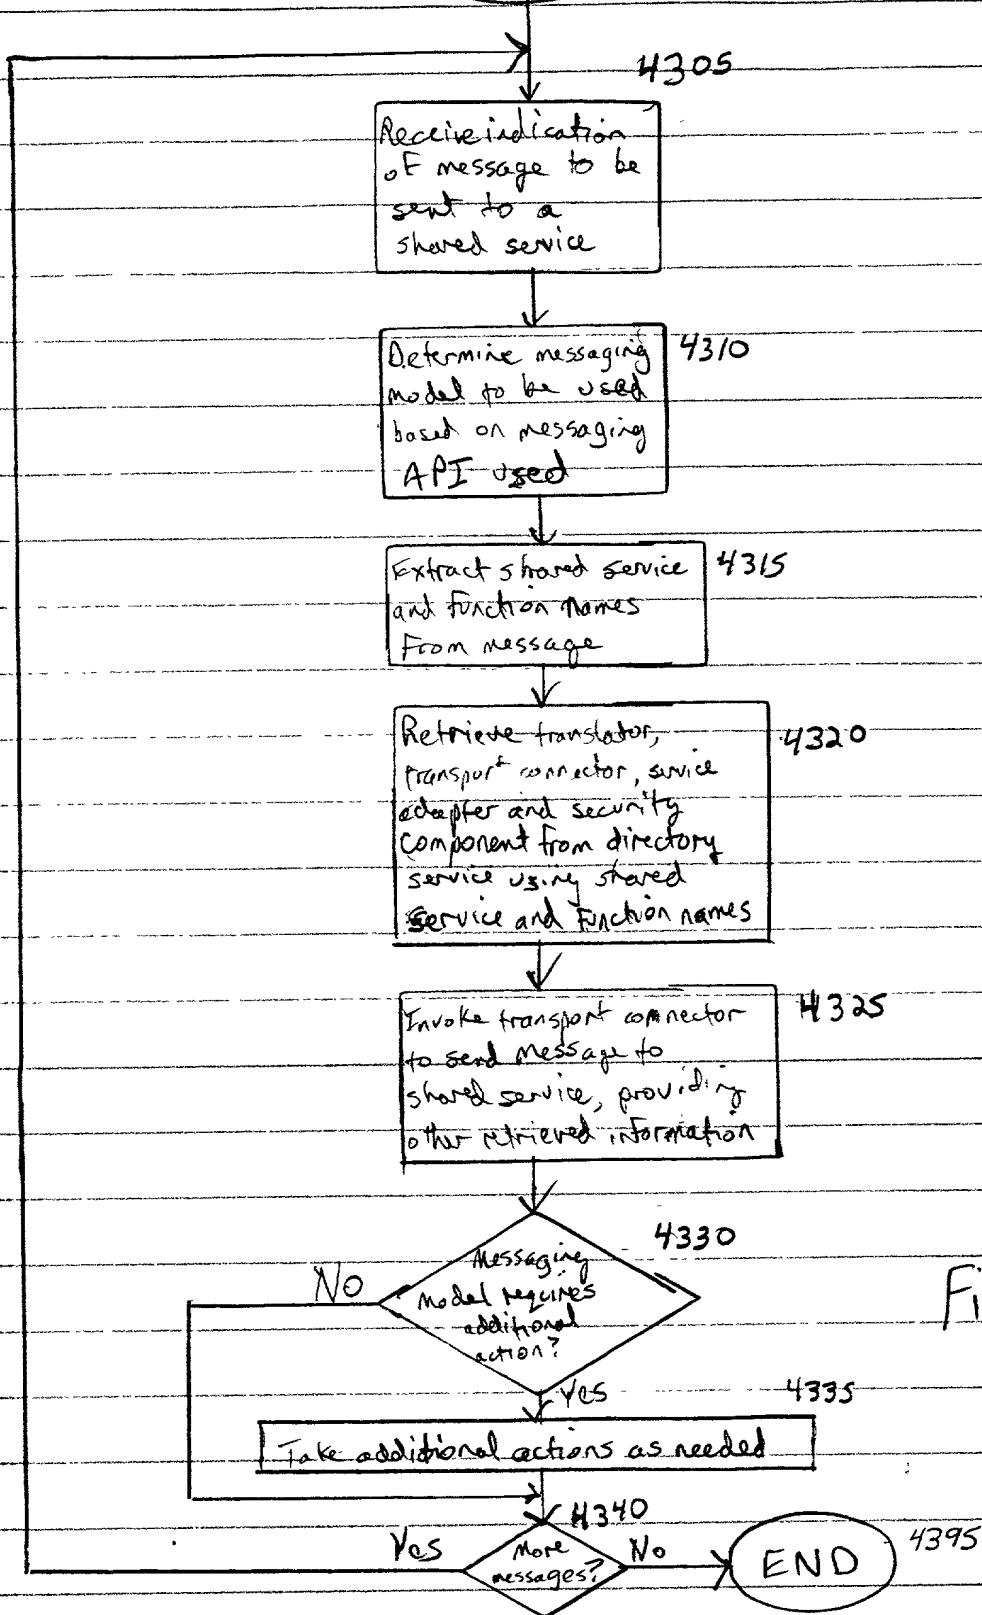 4305
Receive indication
of message to be
sent to a
shared service
4310
Determine messaging
model to be used
based on messaging
API used
4315
Extract shared service
and function names
From message
4320
Retrieve translator,
transport connector, service
adapter and security
component from directory
service using shared
service and function names
4325
Invoke transport connector
to send message to
shared service, providing
other retrieved information
4330
Messaging
model requires
additional
action?
No
Fi
Yes
4335
Take additional actions as needed
4340
More
messages?
Yes
No
END
4395